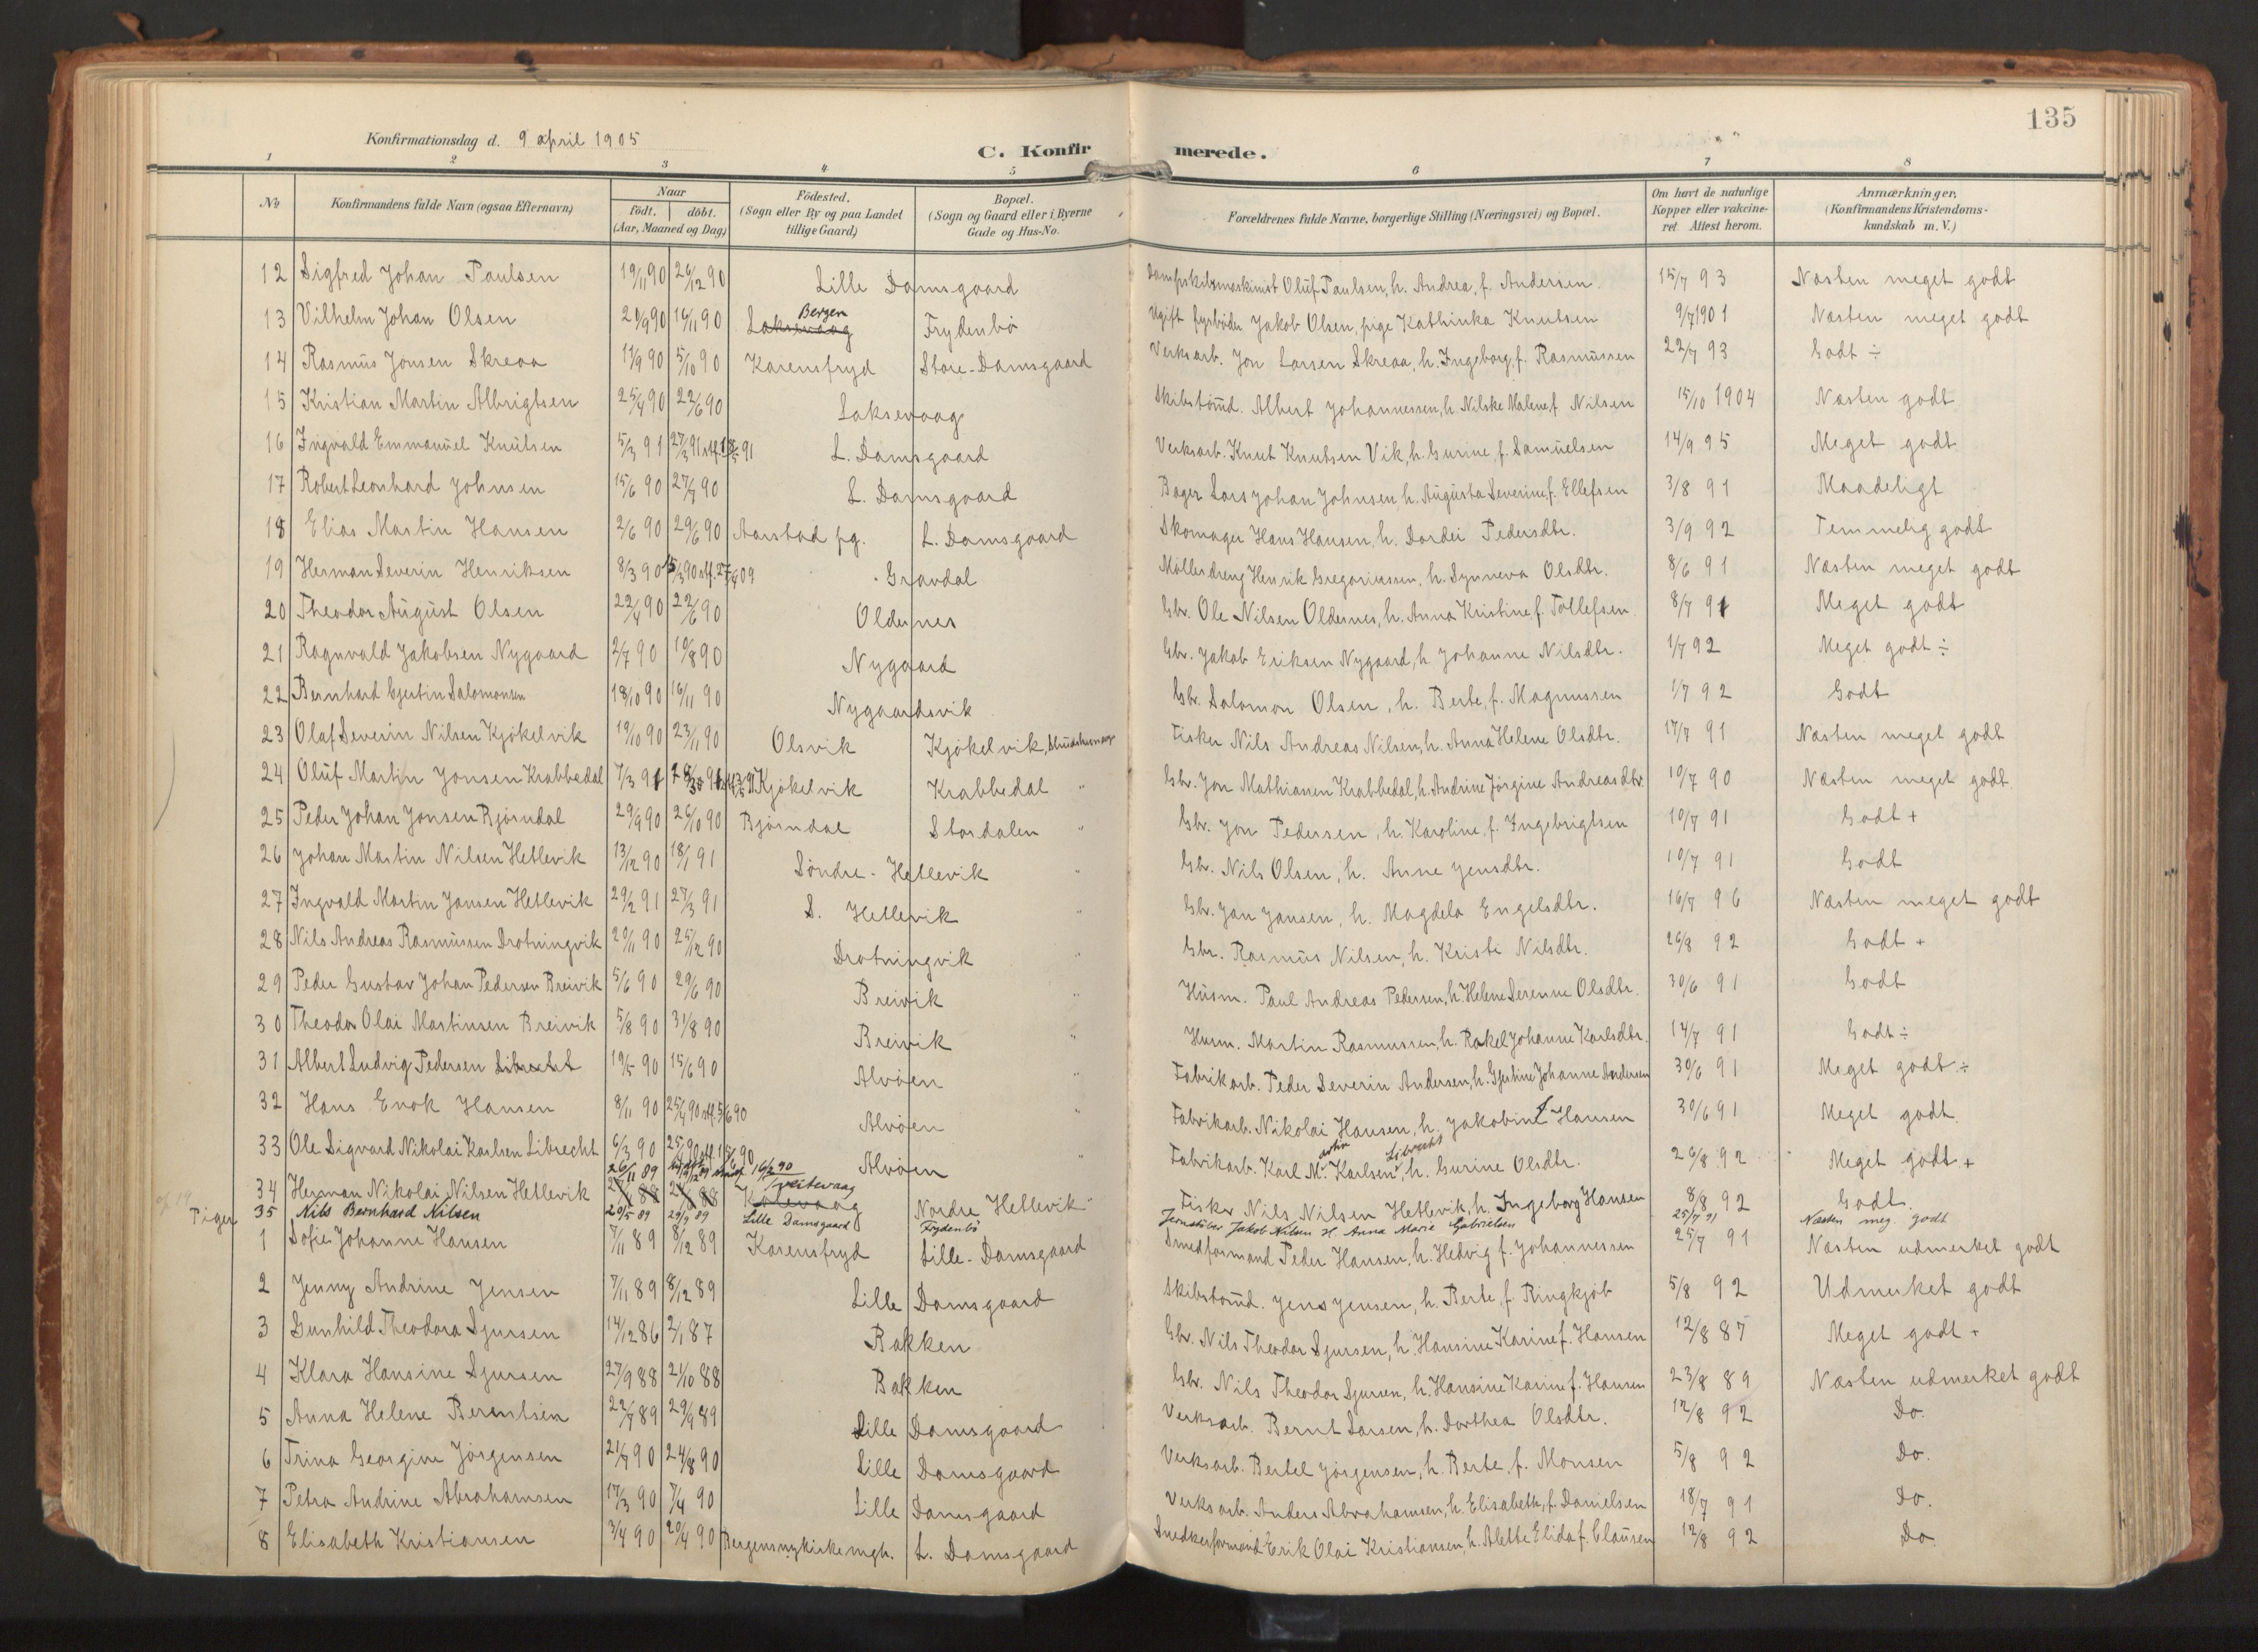 135
Konfirmationsdag d. 9 april 1905
C. Konfirmerede.
1 2 3 4 5 6 7 8
No Konfirmandens fulde Navn (ogsaa Efternavn) Naar født. døbt. (Aar, Maaned og Dag) Födested. (Sogn eller By og paa Landet tillige Gaard) Bopæl. (Sogn og Gaard eller i Byerne Gade og Hus-No. Forældrenes fulde Navne, borgerlige Stilling (Næringsvei) og Bopæl. Om havt de naturlige Kopper eller vakcineret. Attest herom. Anmærkninger. (Konfirmandens Kristendomskundskab m. V.)
12 Sigfred Johan Paulsen 19/11 90 26/12 90 Lille Damsgaard Dampskibsmaskinist Oluf Paulsen, h. Andrea, f. Andersen. 15/7 93 Næsten meget godt
13 Vilhelm Johan Olsen 20/9 90 16/11 90 Laksevaag Bergen Frydenbö Ugift fyrböder Jakob Olsen, pige Kathinka Knutsen 9/7 1901 Næsten meget godt
14 Rasmus Jonsen Skreaa 11/9 90 5/10 90 Karensfryd Store-Damsgaard Verksarb. Jon Larsen Skreaa, h. Ingeborg, f. Rasmussen 22/7 93 Godt ÷
15 Kristian Martin Albrigtsen 25/4 90 22/6 90 Laksevaag Skibstömd. Albert Johannessen, h. Nilske Malene, f. Nilsen 15/10 1904 Næsten godt
16 Ingvald Emmanuel Knutsen 5/3 91 27/3 91 L. Damsgaard Verksarb. Knut Knutsen Vik, h. Gurine, f. Samuelsen 14/9 95 Meget godt
17 Robert Leonhard Johnsen 15/6 90 27/7 90 L. Damsgaard Bager Lars Johan Johnsen, h. Augusta Severine, f. Ellefsen 3/8 91 Maadeligt
18 Elias Martin Hansen 2/6 90 29/6 90 Aarstad pg. L. Damsgaard Skomager Hans Hansen, h. Dordei Pedersdtr. 3/9 92 Temmelig godt
19 Herman Severin Henriksen 8/3 90 15/3 90 Gravdal Möllerdreng Henrik Gregoriussen, h. Synneva Olsdtr. 8/6 91 Næsten meget godt
20 Theodor August Olsen 22/4 90 22/6 90 Oldernes Gbr. Ole Nilsen Oldernes, h. Anna Kristine, f. Tollefsen 8/7 91 Meget godt
21 Ragnvald Jakobsen Nygaard 2/7 90 10/8 90 Nygaard Gbr. Jakob Eriksen Nygaard, h. Johanne Nilsdtr. 1/7 92 Meget godt ÷
22 Bernhard Gjertin Salomonsen 18/10 90 16/11 90 Nygaardsvik Gbr. Salomon Olsen, h. Berte, f. Magnussen 1/7 92 Godt
23 Olaf Severin Nilsen Kjökelvik 19/10 90 23/11 90 Olsvik Kjökelvik, Fisker Nils Andreas Nilsen, h. Anna Helene Olsdtr. 17/7 91 Næsten meget godt
24 Oluf Martin Jonsen Krabbedal 7/3 91 Kjökelvik Krabbedal " Gbr. Jon Mathiasen Krabbedal, h. Andrine Jörgine Andreasdtr. 10/7 90 Næsten meget godt
25 Peder Johan Jonsen Bjørndal 29/9 90 26/10 90 Bjørndal Stordalen " Gbr. Jon Pedersen, h. Karoline, f. Ingebrigtsen 10/7 91 Godt +
26 Johan Martin Nilsen Hetlevik 13/12 90 18/1 91 Söndre-Hetlevik " Gbr. Nils Olsen, h. Anne Jensdtr. 10/7 91 Godt
27 Ingvald Martin Jansen Hetlevik 29/2 91 27/3 91 S. Hetlevik " Gbr. Jan Jansen, h. Magdela Engelsdtr. 16/7 96 Næsten meget godt
28 Nils Andreas Rasmussen Drotningvik 20/11 90 25/12 90 Drotningvik " Gbr. Rasmus Nilsen, h. Kristi Nilsdtr. 26/8 92 Godt +
29 Peder Gustav Johan Pedersen Breivik 5/6 90 29/6 90 Breivik " Husm. Paul Andreas Pedersen, h. Helene Serenne Olsdtr. 30/6 91 Godt
30 Theodor Olai Martinsen Breivik 5/8 90 31/8 90 Breivik " Husm. Martin Rasmussen, h. Rakel Johanne Karlsdtr. 14/7 91 Godt ÷
31 Albert Ludvig Pedersen Librecht 19/5 90 15/6 90 Alvøen " Fabrikarb. Peder Severin Andersen, h. Gjertine Johanne Andersen 30/6 91 Meget godt ÷
32 Hans Enok Hansen 8/11 90 Alvøen " Fabrikarb. Nikolai Hansen, h. Jakobine Hansen 30/6 91 Meget godt
33 Ole Sigvard Nikolai Karlsen Librecht 6/3 90 Alvøen " Fabrikarb. Karl Martin Karlsen Librecht, h. Gurine Olsdtr. 26/8 92 Meget godt +
34 Herman Nikolai Nilsen Hetlevik 26/11 89 Vestrevaag Nordre Hetlevik " Fisker Nils Nilsen Hetlevik, h. Ingeborg Hansen 8/8 92 Godt.
35 Nils Bernhard Nilsen 20/5 89 29/9 89 Lille Damsgaard Frydenbö Jernstöber Jakob Nilsen H. Anna Marie Gabrielsen 25/7 91 Næsten meg. godt
Piger
1 Sofie Johanne Hansen 7/11 89 8/12 89 Karensfryd Lille-Damsgaard Smedformand Peder Hansen, h. Hedvig f. Johannessen 25/7 91 Næsten udmerket godt
2 Jenny Andrine Jensen 7/11 89 8/12 89 Lille Damsgaard Skibstömd. Jens Jensen, h. Berte, f. Ringkjöb 5/8 92 Udmerket godt
3 Gunhild Theodora Sjursen 14/12 86 2/1 87 Bakken Gbr. Nils Theodor Sjursen, h. Hansine Karine f. Hansen 12/8 87 Meget godt +
4 Klara Hansine Sjursen 27/9 88 21/10 88 Bakken Gbr. Nils Theodor Sjursen, h. Hansine Karine f. Hansen 23/8 89 Næsten udmerket godt
5 Anna Helene Berentsen 22/7 89 29/9 89 Lille Damsgaard Verksarb. Bernt Larsen, h. Dorthea Olsdtr. 12/8 92 Do.
6 Trina Georgine Jörgensen 21/7 90 24/8 90 Lille Damsgaard Verksarb. Bertel Jörgensen, h. Berte, f. Monsen 5/8 92 Do.
7 Petra Andrine Abrahamsen 17/3 90 7/4 90 Lille Damsgaard Verksarb. Anders Abrahamsen, h. Elisabeth, f. Danielsen 18/7 91 Do.
8 Elisabeth Kristiansen 3/4 90 20/4 90 Bergens nykirke mgh. L. Damsgaard Snedkerformand Erik Olai Kristiansen, h. Alette Elida f. Clausen 12/8 92 Do.